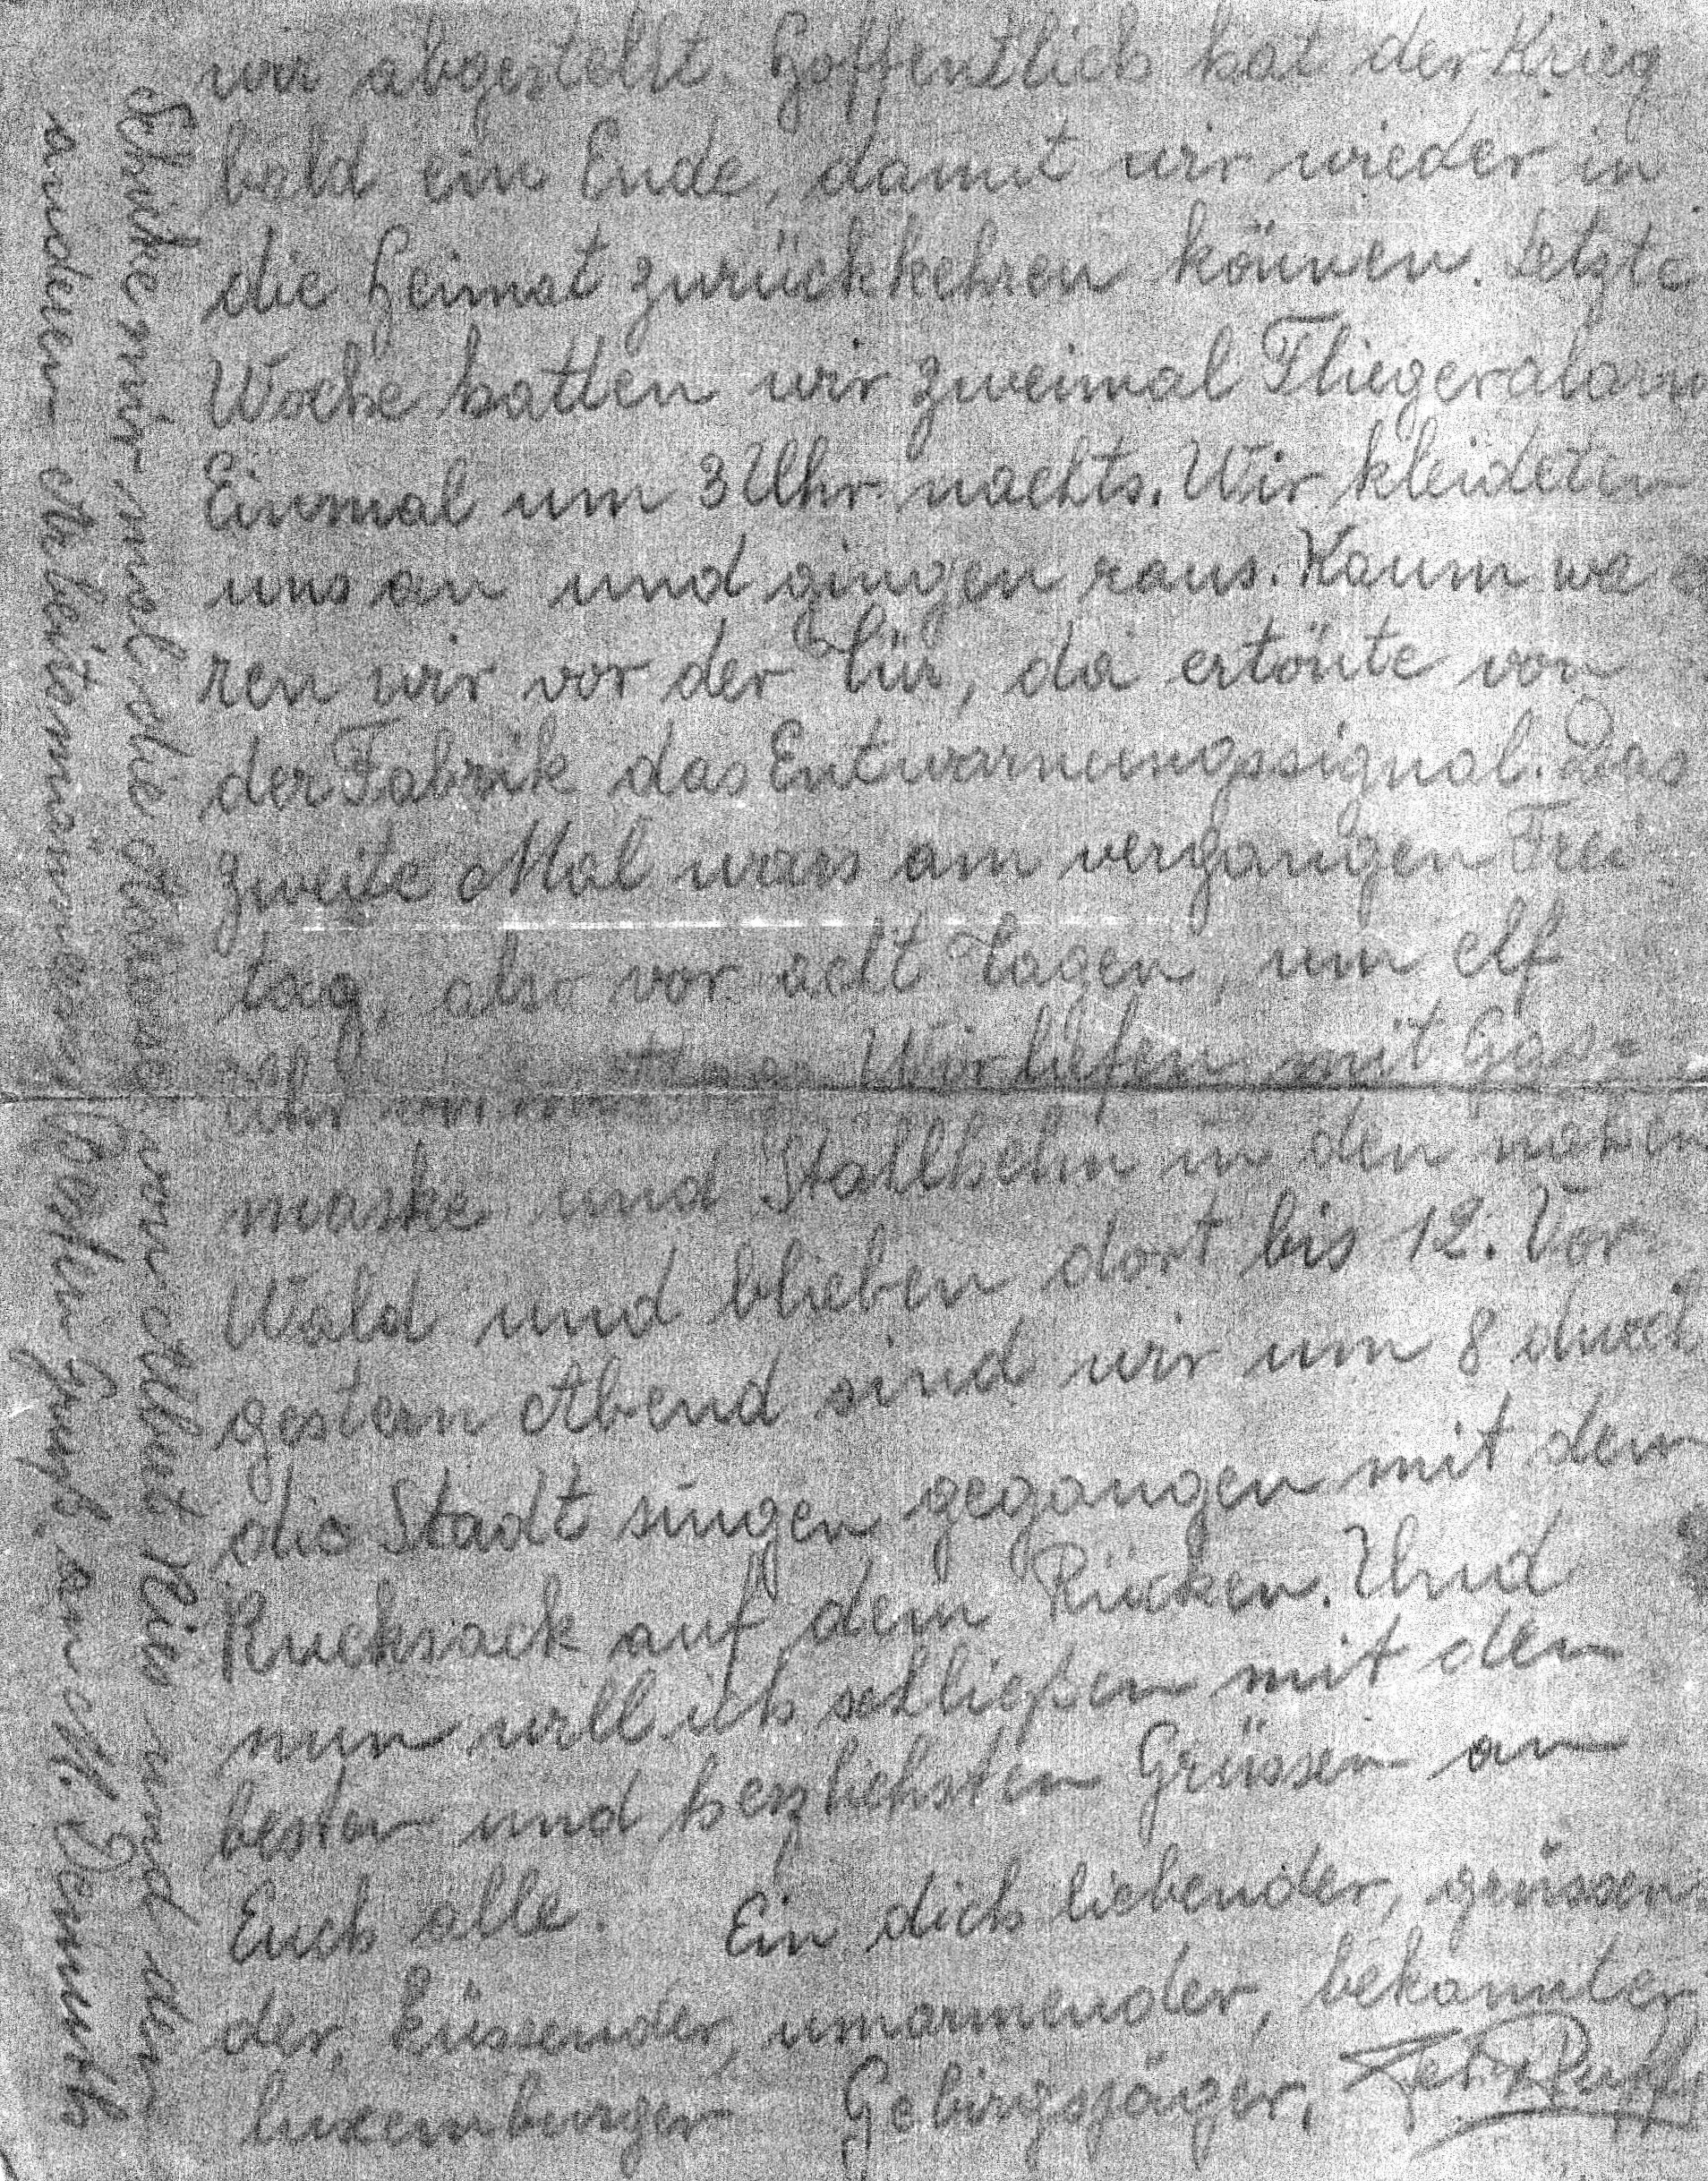 wir abgestellt. Hoffentlich hat der Krieg
bald ein Ende, damit wir wieder in
die Heimat zurückkehren können. Letzte
Woche hatten wir zweimal Fliegeralarm
Einmal um 3 Uhr nachts. Wir kleideten
uns an und gingen raus. Kaum wa
ren wir vor der Tür, da ertönte von
der Fabrik das Entwarnungssignal. Das
zweite Mal wars am vergangen Frei
tag, also vor acht Tagen, um elf
Uhr Wir liefen mit Gas-
maske und Stallhelm in den nahen
Wald und blieben dort bis 12. Vor-
gestern Abend sind wir um 8 durch
die Stadt singen gegangen mit dem
Rucksack auf dem Rücken. Und
nun will ich schließen mit den
besten und herzlichsten Grüssen an
Euch alle. Ein dich liebender, grüssen
der, küssender, umarmender, bekannter
luxemburger Gebirgsjäger,
Schicke mir mal die Adresse von Albert und den
anderen Arbeitsmännern